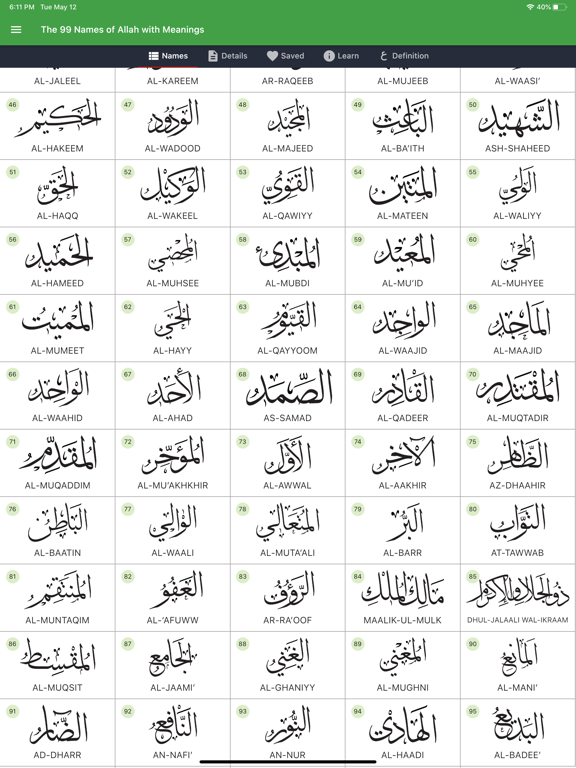 6:11 PM Tue May 12
40%
The 99 Names of Allah with Meanings
Names Details Saved Learn Definition
AL-JALEEL AL-KAREEM AR-RAQEEB AL-MUJEEB AL-WAASI'
46 الحكيم 47 الودود 48 المجيد 49 الباعث 50 الشهيد
AL-HAKEEM AL-WADOOD AL-MAJEED AL-BA'ITH ASH-SHAHEED
51 الحق 52 الوكيل 53 القوي 54 المتين 55 الولي
AL-HAQQ AL-WAKEEL AL-QAWIYY AL-MATEEN AL-WALIYY
56 الحميد 57 المحصي 58 المبدئ 59 المعيد 60 المحيي
AL-HAMEED AL-MUHSEE AL-MUBDI AL-MU'ID AL-MUHYEE
61 المميت 62 الحي 63 القيوم 64 الواجد 65 الماجد
AL-MUMEET AL-HAYY AL-QAYYOOM AL-WAAJID AL-MAAJID
66 الواحد 67 الأحد 68 الصمد 69 القادر 70 المقتدر
AL-WAAHID AL-AHAD AS-SAMAD AL-QADEER AL-MUQTADIR
71 المقدم 72 المؤخر 73 الأول 74 الآخر 75 الظاهر
AL-MUQADDIM AL-MU'AKHKHIR AL-AWWAL AL-AAKHIR AZ-DHAAHIR
76 الباطن 77 الوالي 78 المتعالي 79 البر 80 التواب
AL-BAATIN AL-WAALI AL-MUTA'ALI AL-BARR AT-TAWWAB
81 المنتقم 82 العفو 83 الرؤوف 84 مالك الملك 85 ذو الجلال والإكرام
AL-MUNTAQIM AL-'AFUWW AR-RA'OOF MAALIK-UL-MULK DHUL-JALAALI WAL-IKRAAM
86 المقسط 87 الجامع 88 الغني 89 المغني 90 المانع
AL-MUQSIT AL-JAAMI' AL-GHANIYY AL-MUGHNI AL-MANI'
91 الضار 92 النافع 93 النور 94 الهادي 95 البديع
AD-DHARR AN-NAFI' AN-NUR AL-HAADI AL-BADEE'